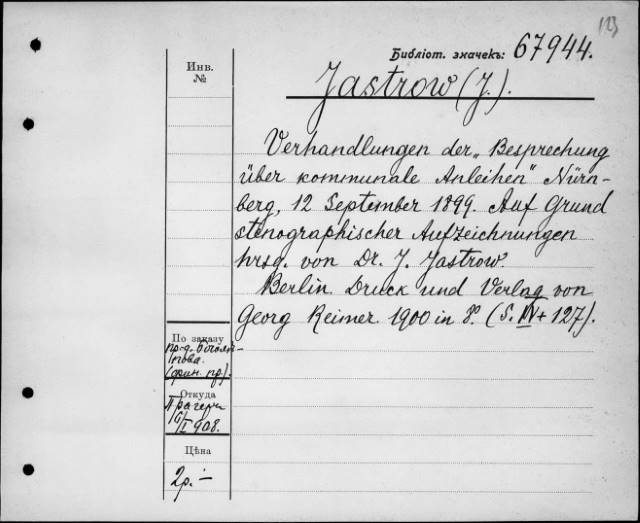 123
Библіот. значекъ: 67944.
Инв.
№
Jastrow (J.).
Verhandlungen der „Besprechung
über kommunale Anleihen" Nürn-
berg, 12 September 1899. Auf Grund
stenographischer Aufzeichnungen
hrsg. von Dr. J. Jastrow.
Berlin Druck und Verlag von
Georg Reimer 1900 in 8°. (S. IV + 127).
По заказу
пр-д. Боголѣ-
пова
(фин. пр.).
Откуда
I 908.
Цѣна
2р. –